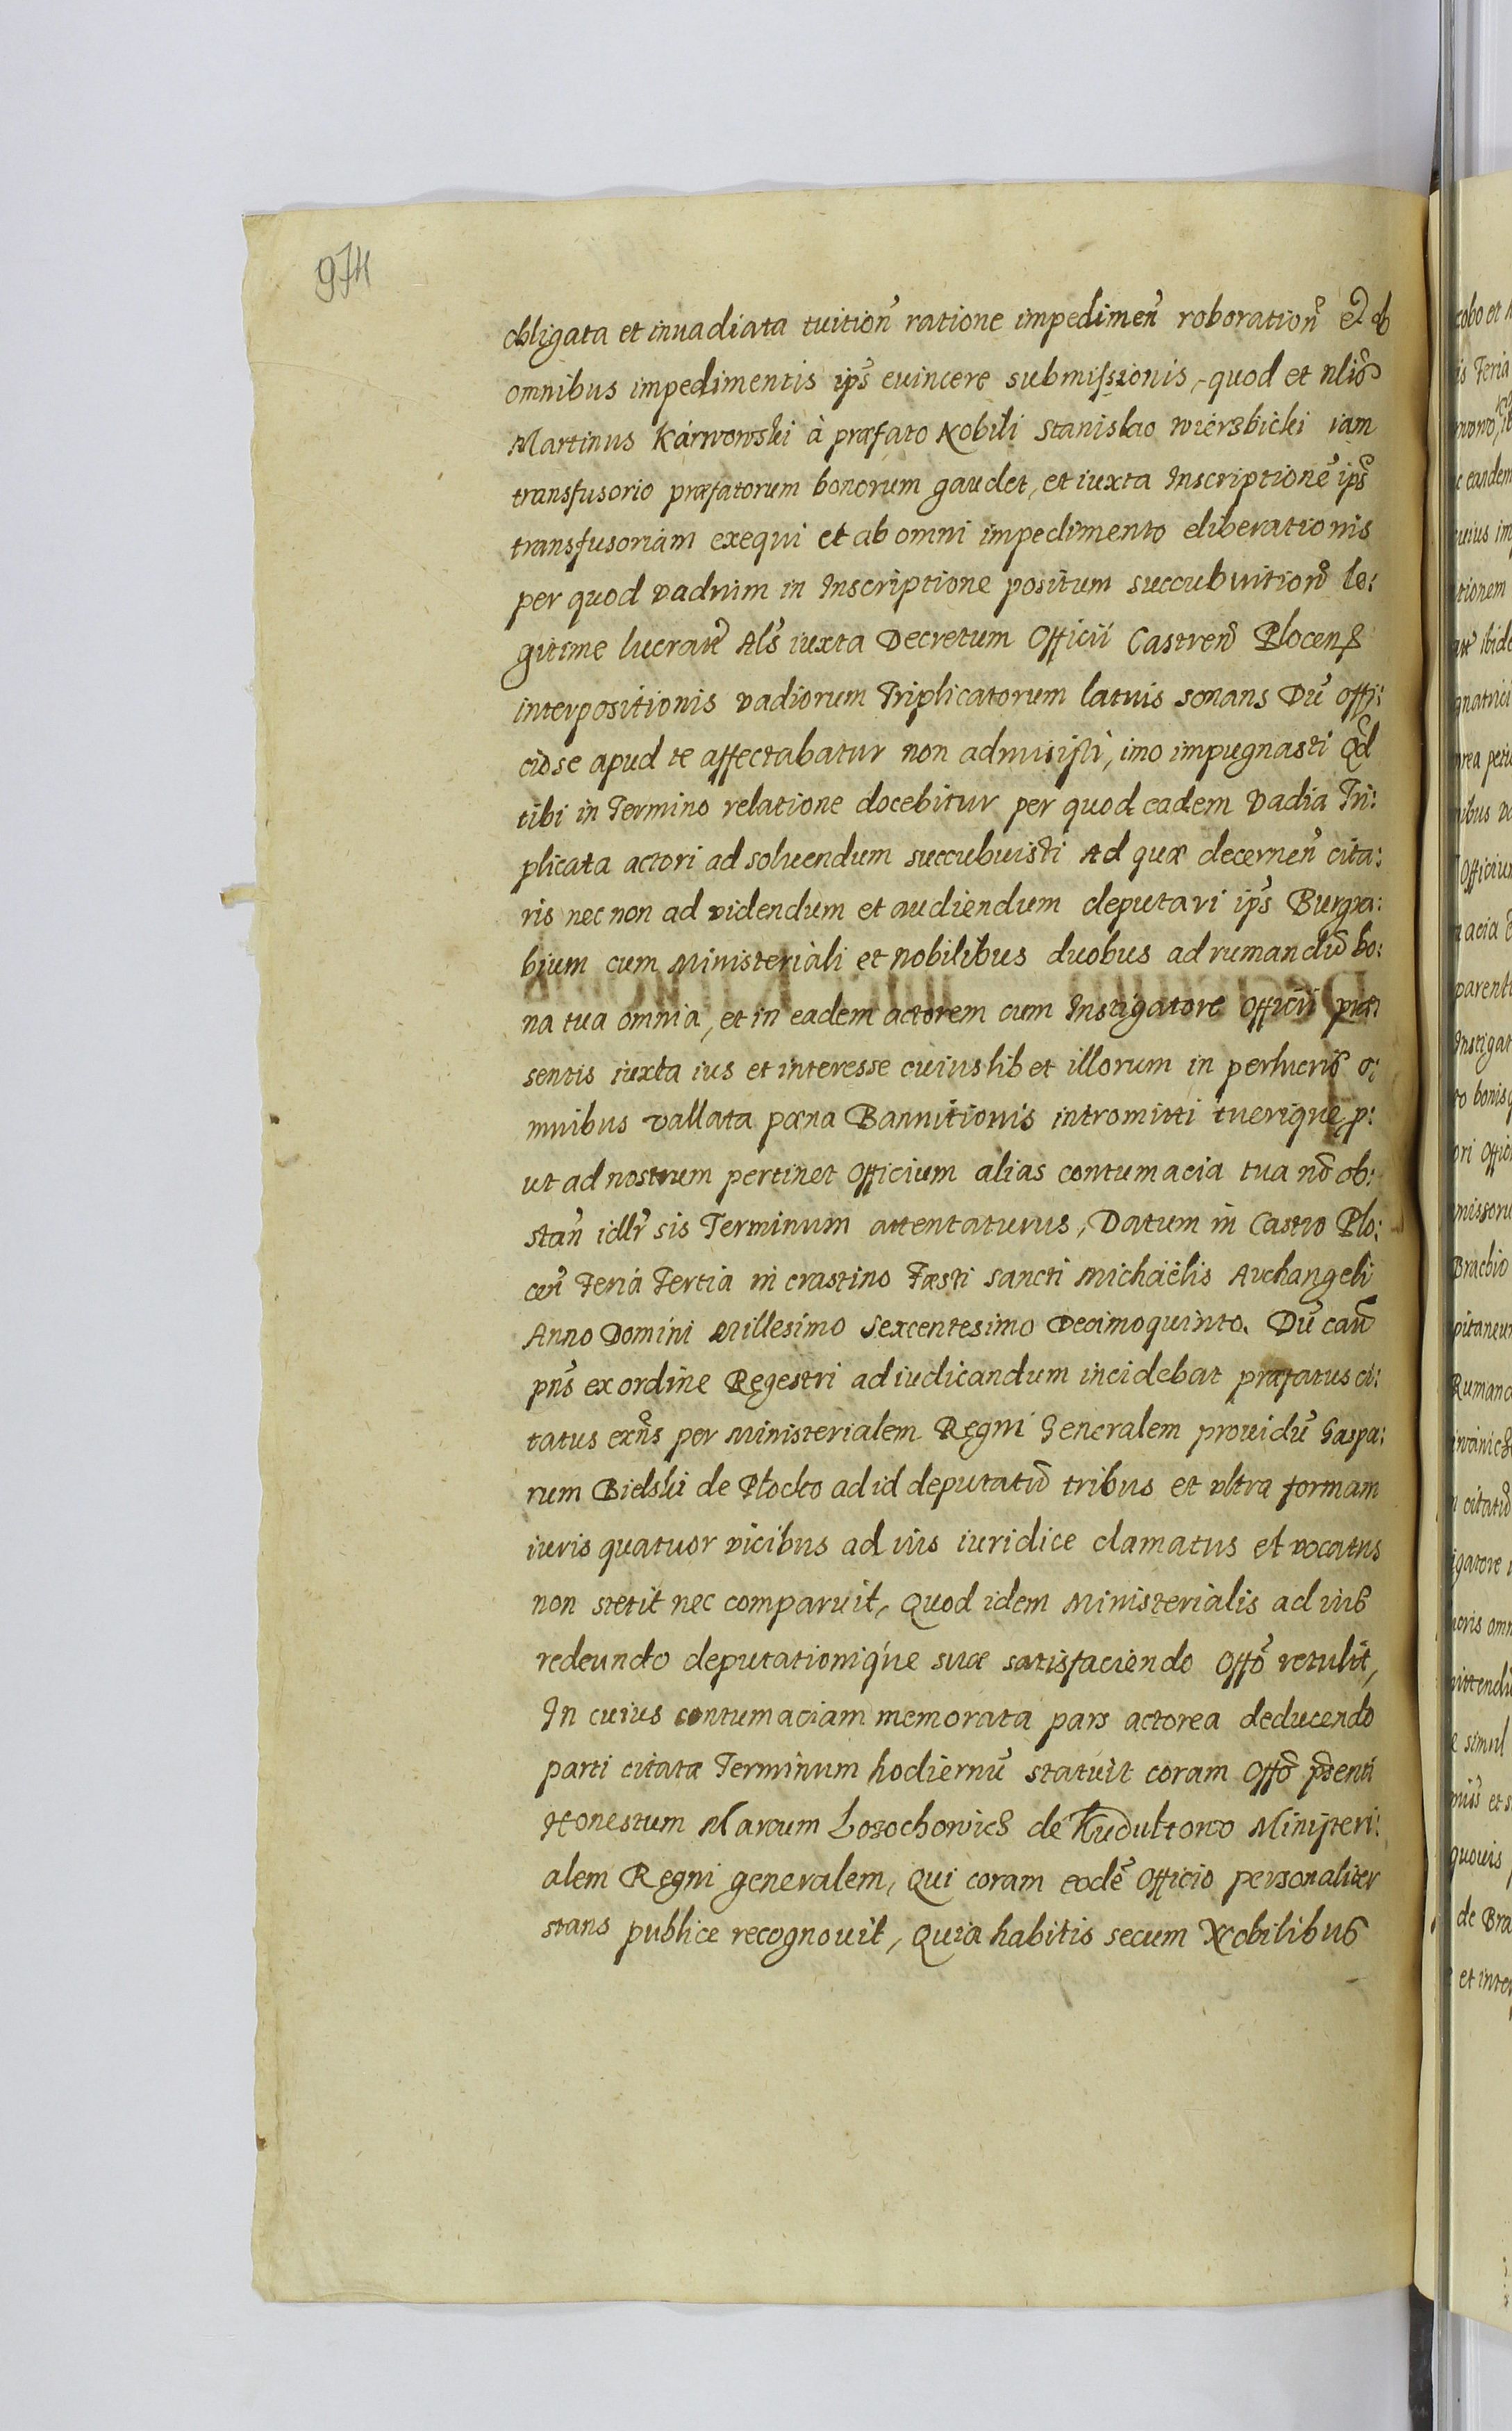 974
obligata et inuadiata tuition̄ ratione impedimen̄ roboration̄ et ab
omnibus impedimentis ips̄ euincere submissionis, quod et nlis
Martinus Kárwowski à præfato Nobili Stanislao Wierzbicki iam
transfusorio præfatorum bonorum gaudet, et iuxta Inscriptionē ips̄
transfusoriam exequi et ab omni impedimento eliberationis
per quod vadium in Inscriptione positum succubuition̄ le:
gitime lucrare Als̄ iuxta Decretum Officii Castren̄ Plocens
interpositionis vadiorum Triplicatorum latius sonans Dū offi:
ciose apud te affectabatur non admisisti, imo impugnasti Qd
tibi in Termino relatione docebitur per quod eadem Vadia Tri:
plicata actori ad soluendum succubuisti Ad quæ decernen̄ cita:
ris nec non ad videndum et audiendum deputari ips̄ Burgra:
bium cum Ministeriàli et Nobilibus duobus ad rumandū bo:
na tua omnia, et in eadem actorem cum Instigatore Officii præ:
sentis iuxta ius et interesse cuiuslibet illorum in perlucris o:
mnibus vallata pæna Bannitionis intromitti tuerique p:
ut ad nostrum pertinet Officium alias contumacia tua nō ob:
stan̄ idlr̄ sis Terminum attentaturus, Datum in Castro Plo:
cen̄ Feria Tertia in crastino Fæsti Sancti Michaëlis Archangeli
Anno Domini Millesimo Sexcentesimo Decimoquinto. Dū cau̅
pn̄s ex ordine Regestri ad iudicandum incidebat præfatus ci:
tatus exn̄s per Ministerialem Regni Generalem prouidū Gaspa:
rum Bielski de Płocko ad id deputatū tribus et vltra formam
iuris quatuor vicibus ad ius iuridice clamatus et vocatus
non stetit nec comparuit, Quod idem Ministerialis ad ius
redeundo deputationiq́ue suæ satisfaciendo Offō retulit,
In cuius contumaciam memorata pars actorea deducendo
parti citatæ Terminum hodiernū statuit coram Offō pn̄senti
Honestum Marcum Lozochowicz de Kudultowo Ministeri:
alem Regni generalem, Qui coram eodē Officio personaliter
stans publice recognouit, Quia habitis secum Nobilibus